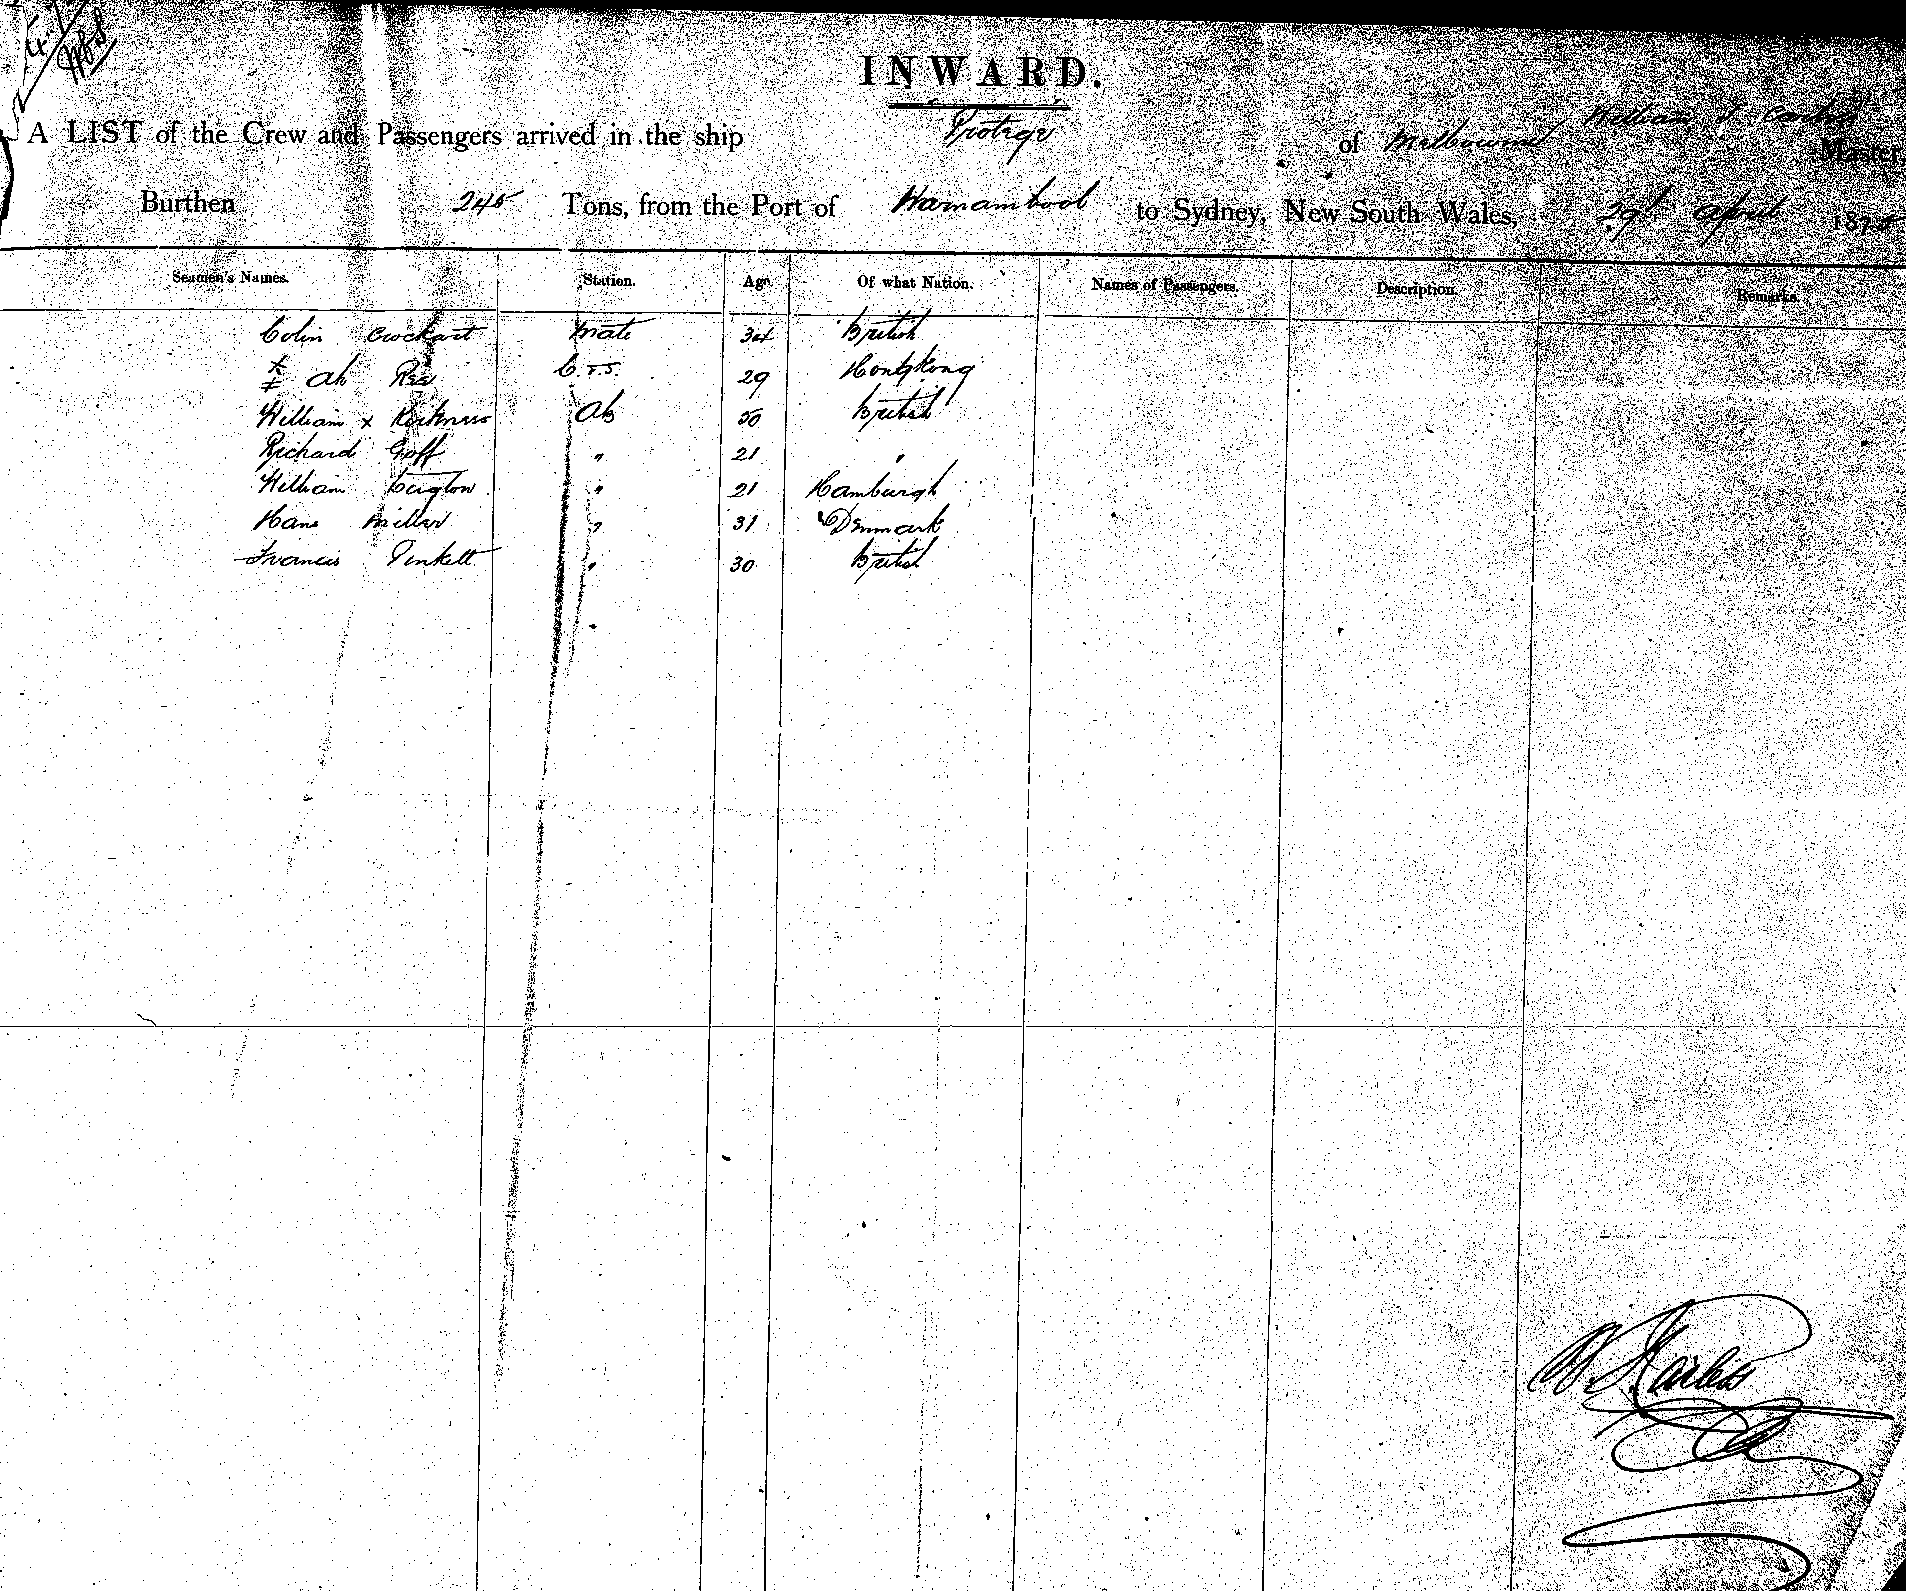 INWARD.
A LIST of the Crew and Passengers arrived in the ship Protege of Melbourne, William Master,
Burthen 245 Tons, from the Port of Warnambool to Sydney, New South Wales, 29th April 1875
Seamen's Names. Station. Age. Of what Nation. Names of Passengers. Description. Remarks.
Colin Crockart Mate 34 British
Ah Kee C & S. 29 Hong Kong
William x Kirkness Ab 50 British
Richard Goff " 21 "
William " 21 Hamburgh
Hans Miller " 31 Denmark
Francis Pinkett " 30 British